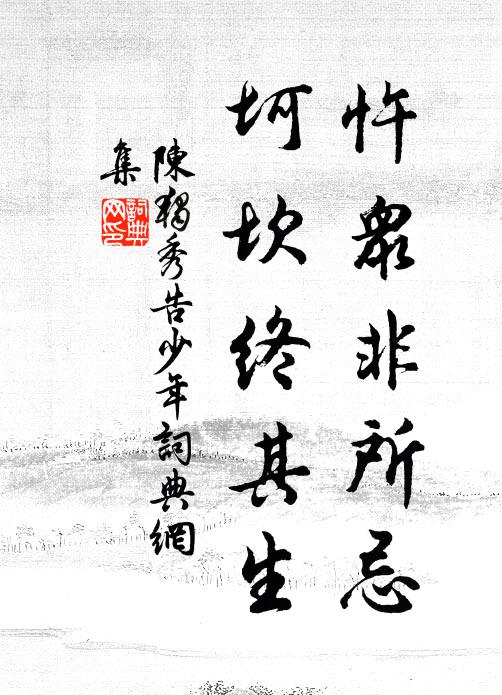 忤眾非所忌
坷坎終其生
陳獨秀告少年詞典網
集
詞典網印